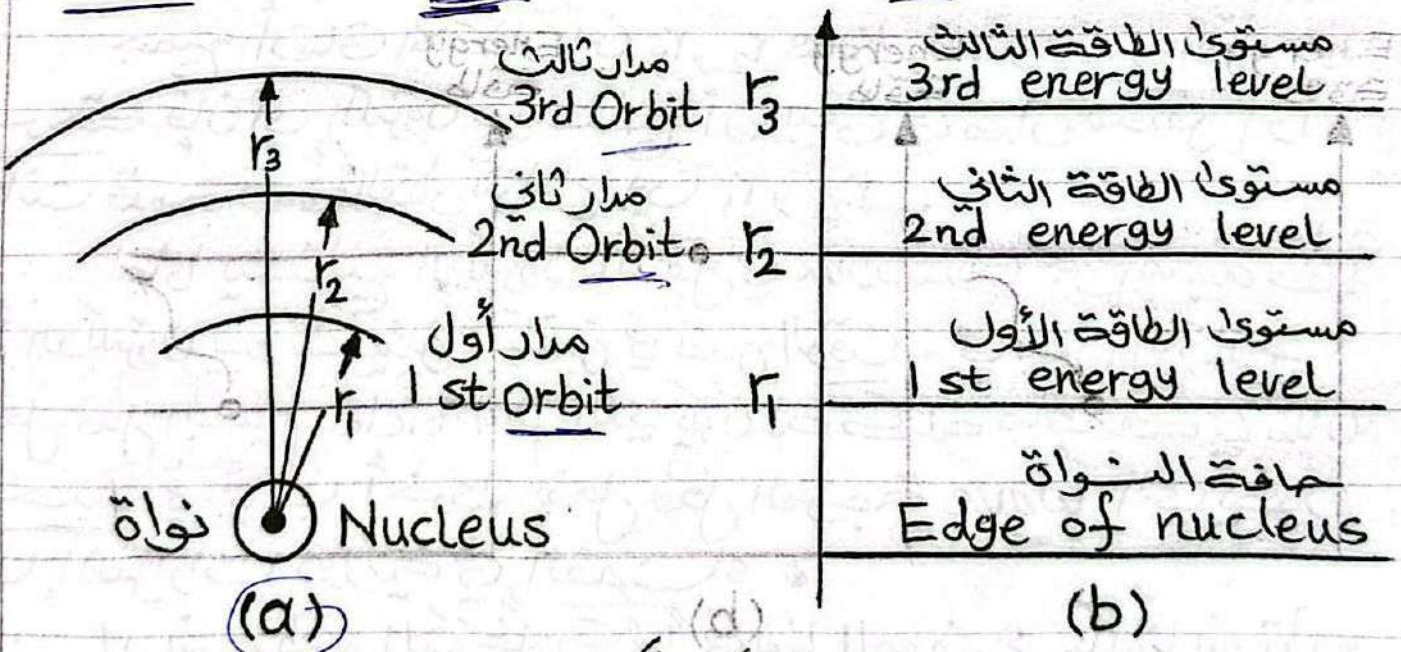 مدار ثالث
3rd Orbit
r3
مدار ثاني
2nd Orbit
r2
مدار أول
1st Orbit
r1
نواة Nucleus
(a)
مستوى الطاقة الثالث
3rd energy level
r3
مستوى الطاقة الثاني
2nd energy level
r2
مستوى الطاقة الأول
1st energy level
r1
حافة النواة
Edge of nucleus
(b)